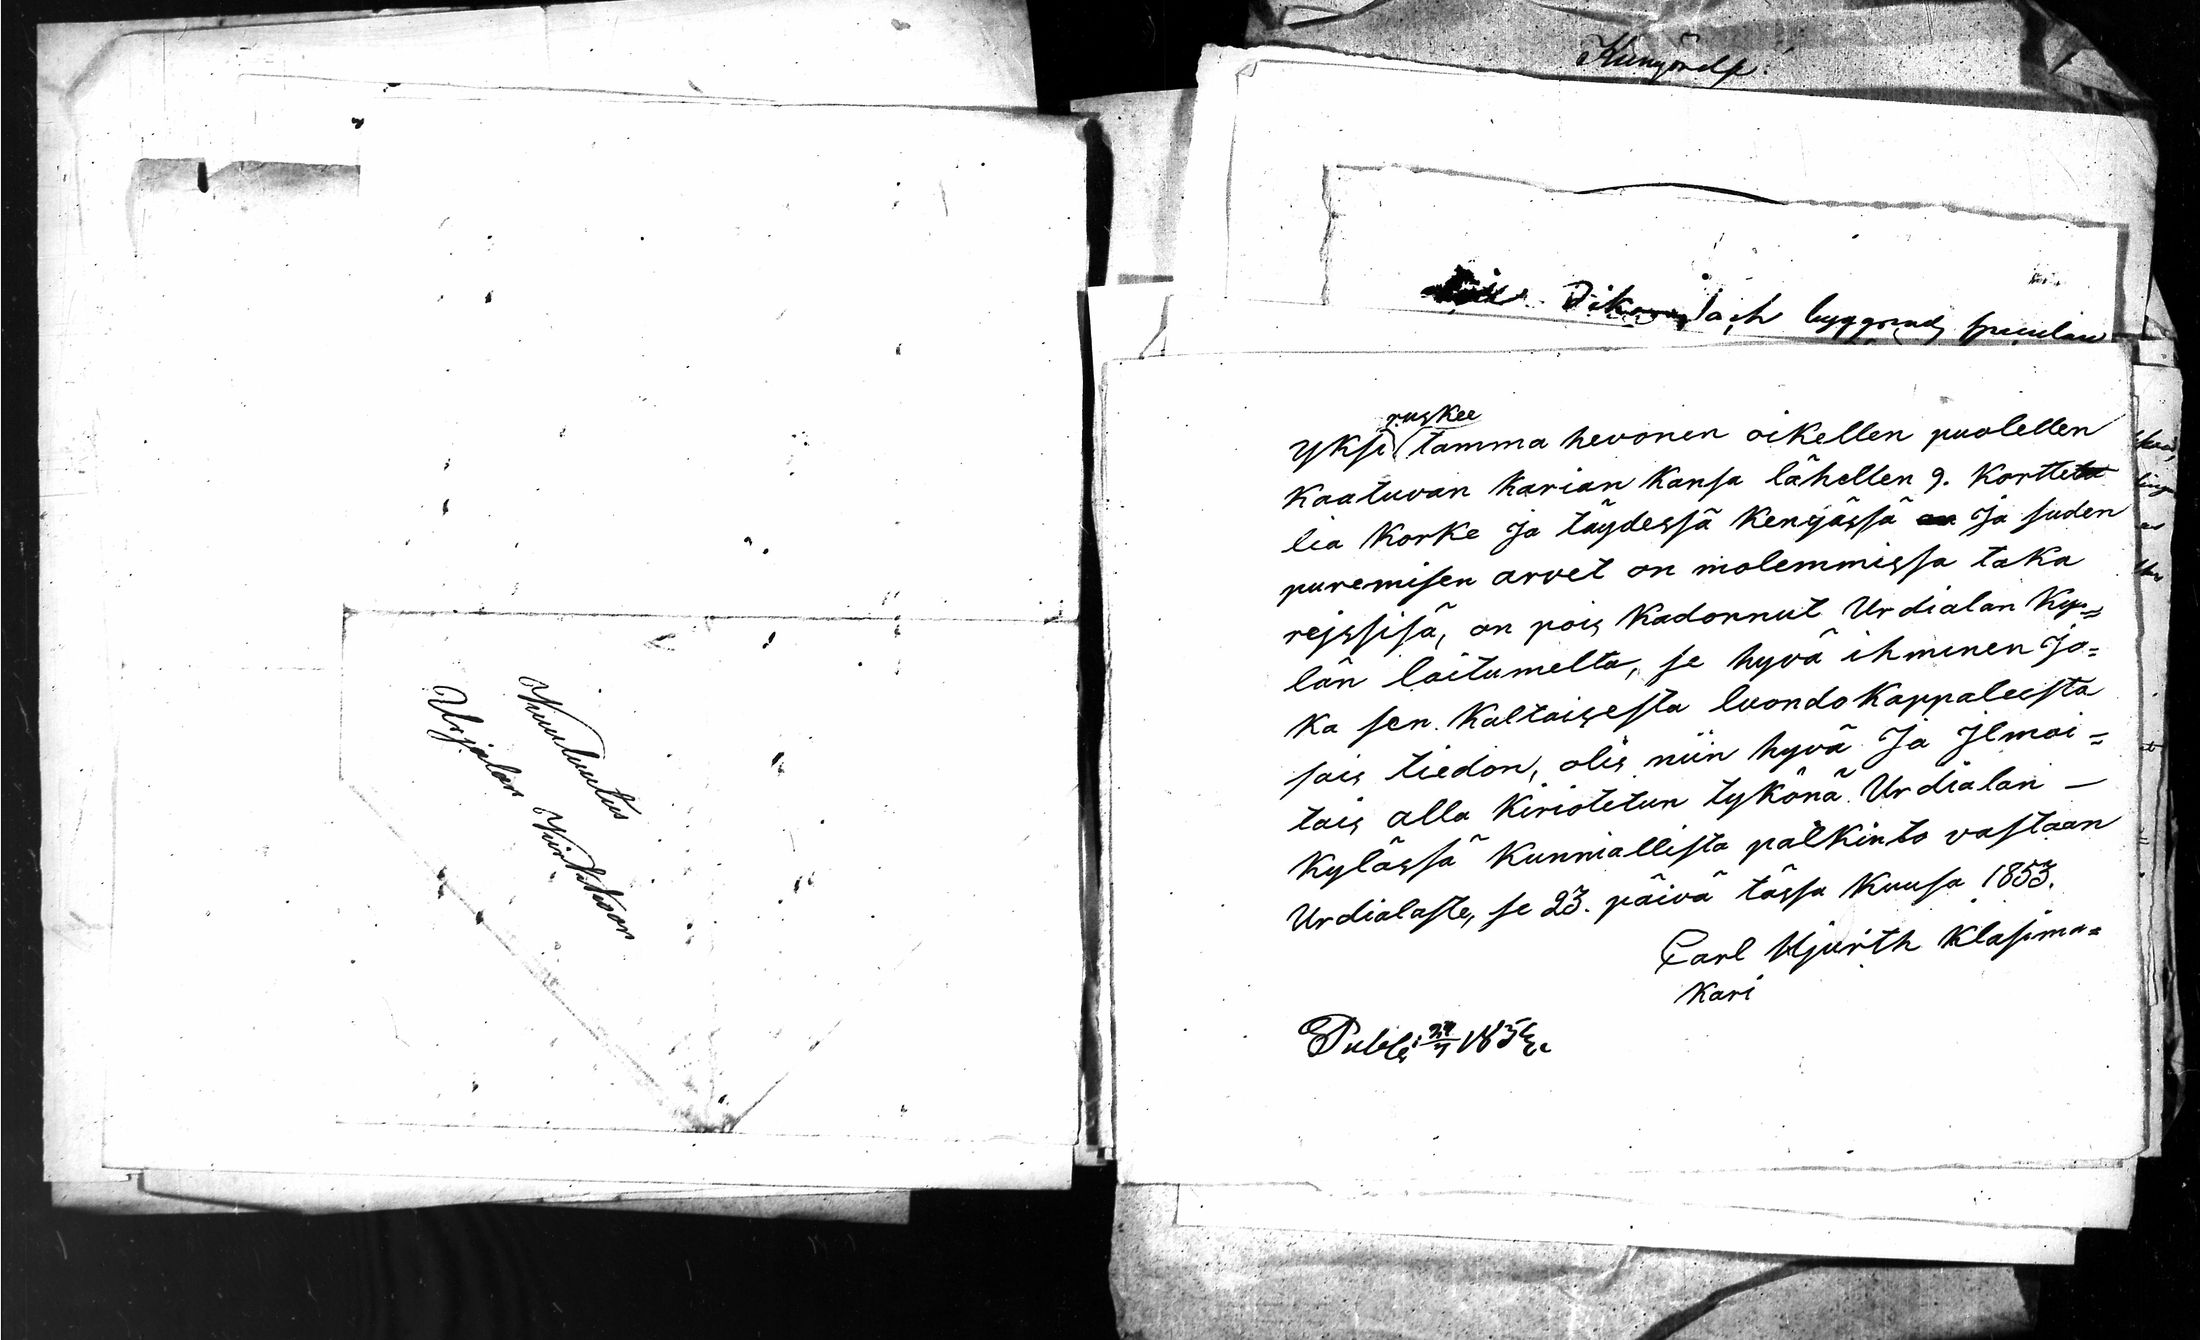 Kuulutus
Urjalan Kirkkoon
ruskee
Yksi tamma hevonen oikellen puolellen
Kaatuvan harian Kansa lähellen 9. Kortte
lia Korke Ja täydessä Kengässä Ja suden
puremisen arvet on molemmissa taka
rejssisä, on pois Kadonnut Urdialan Ky=
län laitumelta, se hyvä ihminen Jo=
Ka sen Kaltaisesta luondoKappaleesta
sais tiedon, olis niin hyvä Ja Jlmoi=
tais alla Kiriotetun tykönä Urdialan —
Kylässä Kunniallista palKinto vastaan
Urdialaste, se 23. päivä tässä Kuusa 1853.
Carl Hjurth Klasima=
Kari
Publ: 24/7 1853.